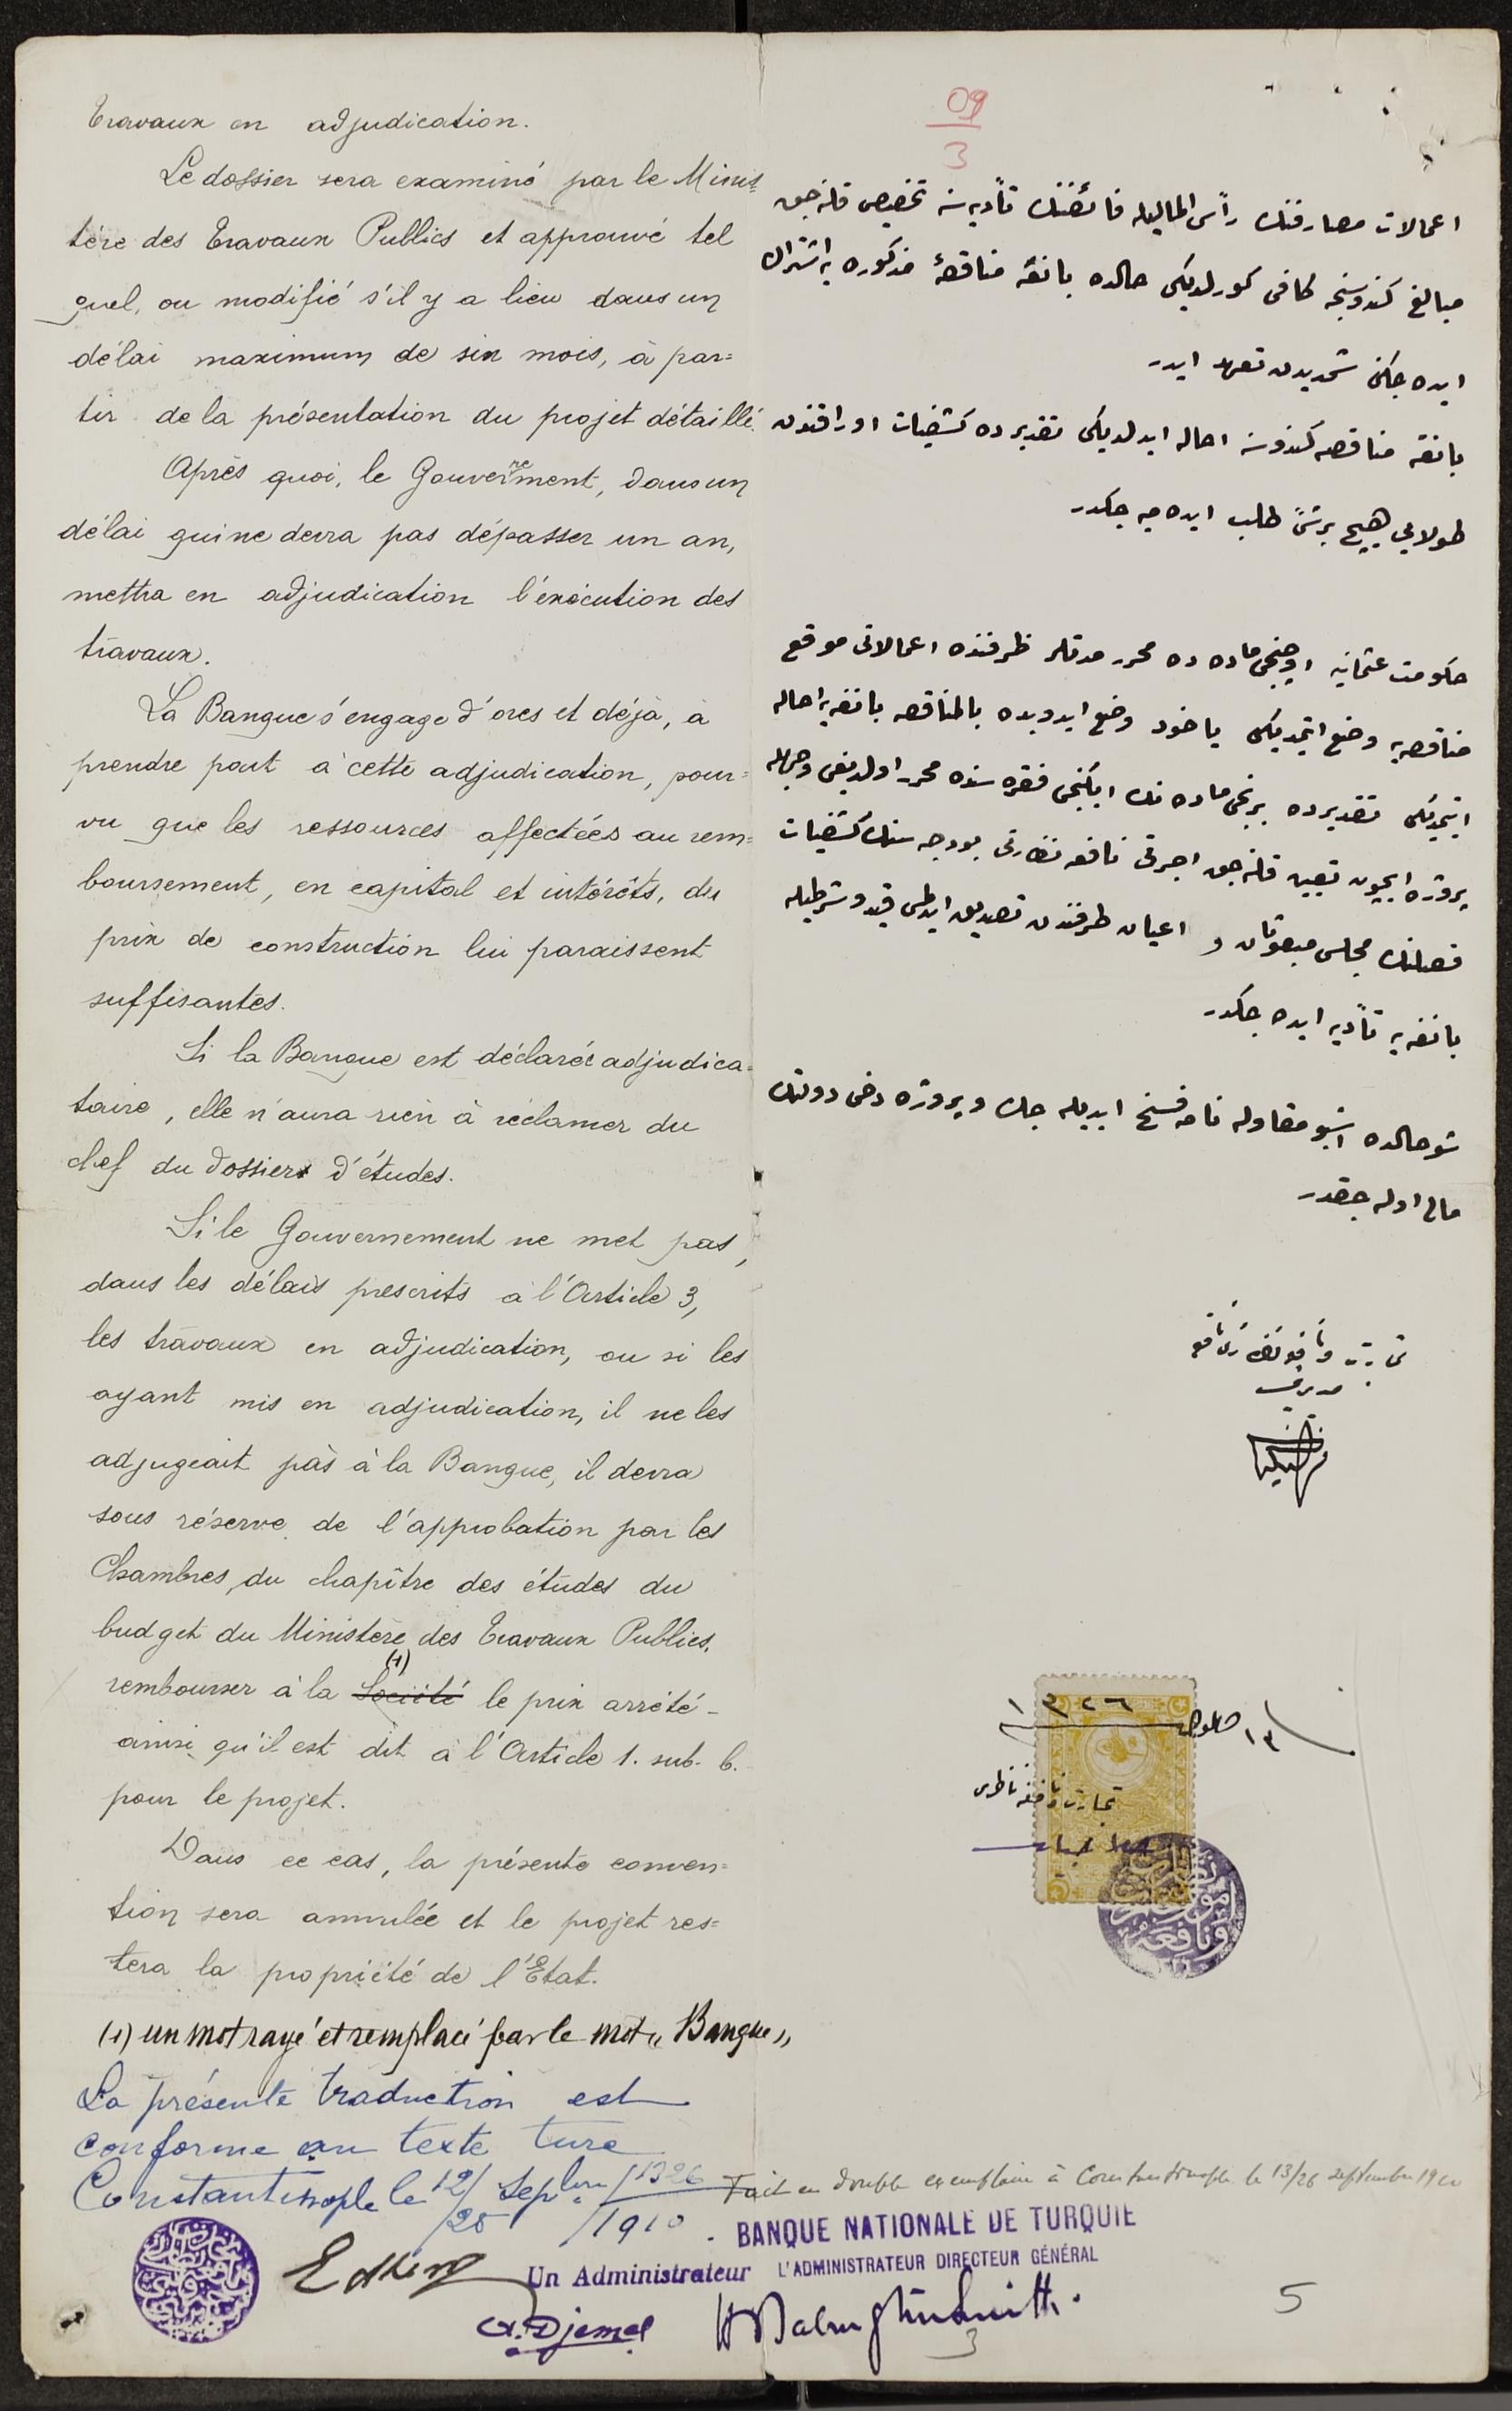 travaux en adjudication.
Le dossier sera examiné par le Minis=
tère des Travaux Publics et approuvé tel
quel, ou modifié s'il y a lieu dans un
délai maximum de six mois, à par=
tir de la présentation du projet détaillé.
Après quoi, le Gouvernement, dans un
délai qui ne devra pas dépasser un an,
mettra en adjudication l'exécution des
travaux.
La Banque s'engage d'ores et déjà, à
prendre part à cette adjudication, pour=
vu que les ressources affectées au rem=
boursement, en capital et intérêts, du
prix de construction lui paraissent
suffisantes.
Si la Banque est déclarée adjudica=
taire, elle n'aura rien à réclamer du
chef du dossier d'études.
Si le Gouvernement ne met pas,
dans les délais prescrits à l'Article 3,
les travaux en adjudication, ou si les
ayant mis en adjudication, il ne les
adjugeait pas à la Banque, il devra
sous réserve de l'approbation par les
Chambres, du chapître des études du
budget du Ministère des Travaux Publics,
(1)
rembourser à la Société le prix arrêté
ainsi qu'il est dit à l'Article 1. sub. b.
pour le projet.
Dans ce cas, la présente conven=
tion sera annulée et le projet res=
tera la propriété de l'Etat.
(1) un mot rayé et remplacé par le mot "Banque"
La présente traduction est
conforme au texte turc
Constantinople le 12/25 Septbre 1326/1910
Edhem
Un Administrateur
A. Djemal
09
3
اعمالات مصارفنك رأس المالیله فائضنك تأدیه سنه تخصیص قلنه جق
مبالغ كندوسنجه كافی كورلدیكی حالده بانقه مناقصهٔ مذكوره یه اشتراك
ایده جكنی شمدیدن تعهد ایدر
بانقه مناقصه كندوسنه احاله ایدلدیكی تقدیرده كشفیات اوراقندن
طولایی هیچ برشئ طلب ایده میه جكدر
حكومت عثمانیه اوچنجی ماده ده محرر مدتلر ظرفنده اعمالاتی موقع
مناقصه یه وضع ایتمدیكی یاخود وضع ایدوبده بالمناقصه بانقه یه احاله
ایتمدیكی تقدیرده برنجی ماده نك ایكنجی فقره سنده محرر اولدیغی وجهله
پروژه ایچون تعیین قلنه جق اجرتی نافعه نظارتی بودجه سنك كشفیات
فصلنك مجلس مبعوثان و اعیان طرفندن تصدیق ایدلمسی قید و شرطیله
بانقه یه تأدیه ایده جكدر
شو حالده اشبو مقاوله نامه فسخ ایدیله جك و پروژه دخی دولتك
مالی اوله جقدر
١٣ ایلول ١٣٢٦
تجارت و نافعه ناظری
Fait en double exemplaire à Constantinople le 13/26 septembre 1910
BANQUE NATIONALE DE TURQUIE
L'ADMINISTRATEUR DIRECTEUR GÉNÉRAL
5
3